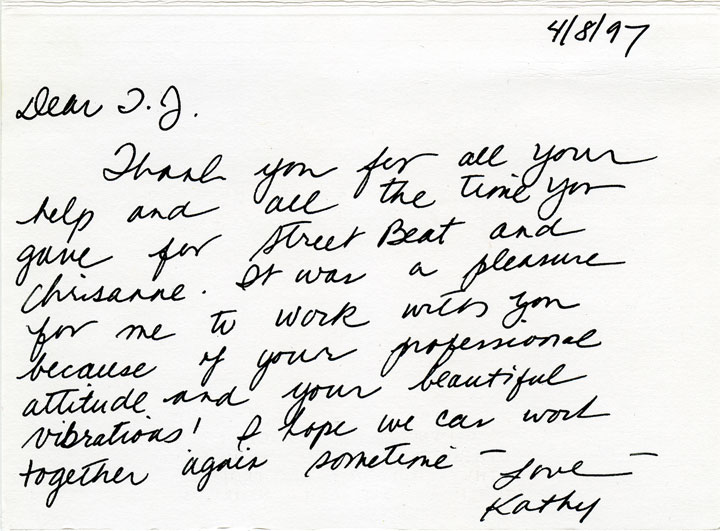 4/8/97
Dear T.J.
Thank you for all your
help and all the time you
gave for Street Beat and
Chrisanne. It was a pleasure
for me to work with you
because of your professional
attitude and your beautiful
vibrations! I hope we can work
together again sometime –
Love –
Kathy